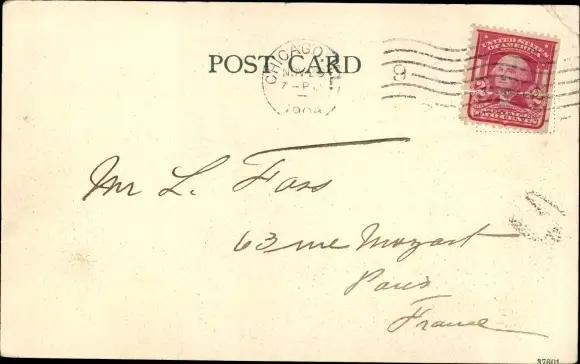 POST CARD
CHICAGO
7-P
9
UNITED STATES
OF AMERICA
2 2
TWO CENTS
Mr L. Fass
63 rue Mozart
Paris
France
37601